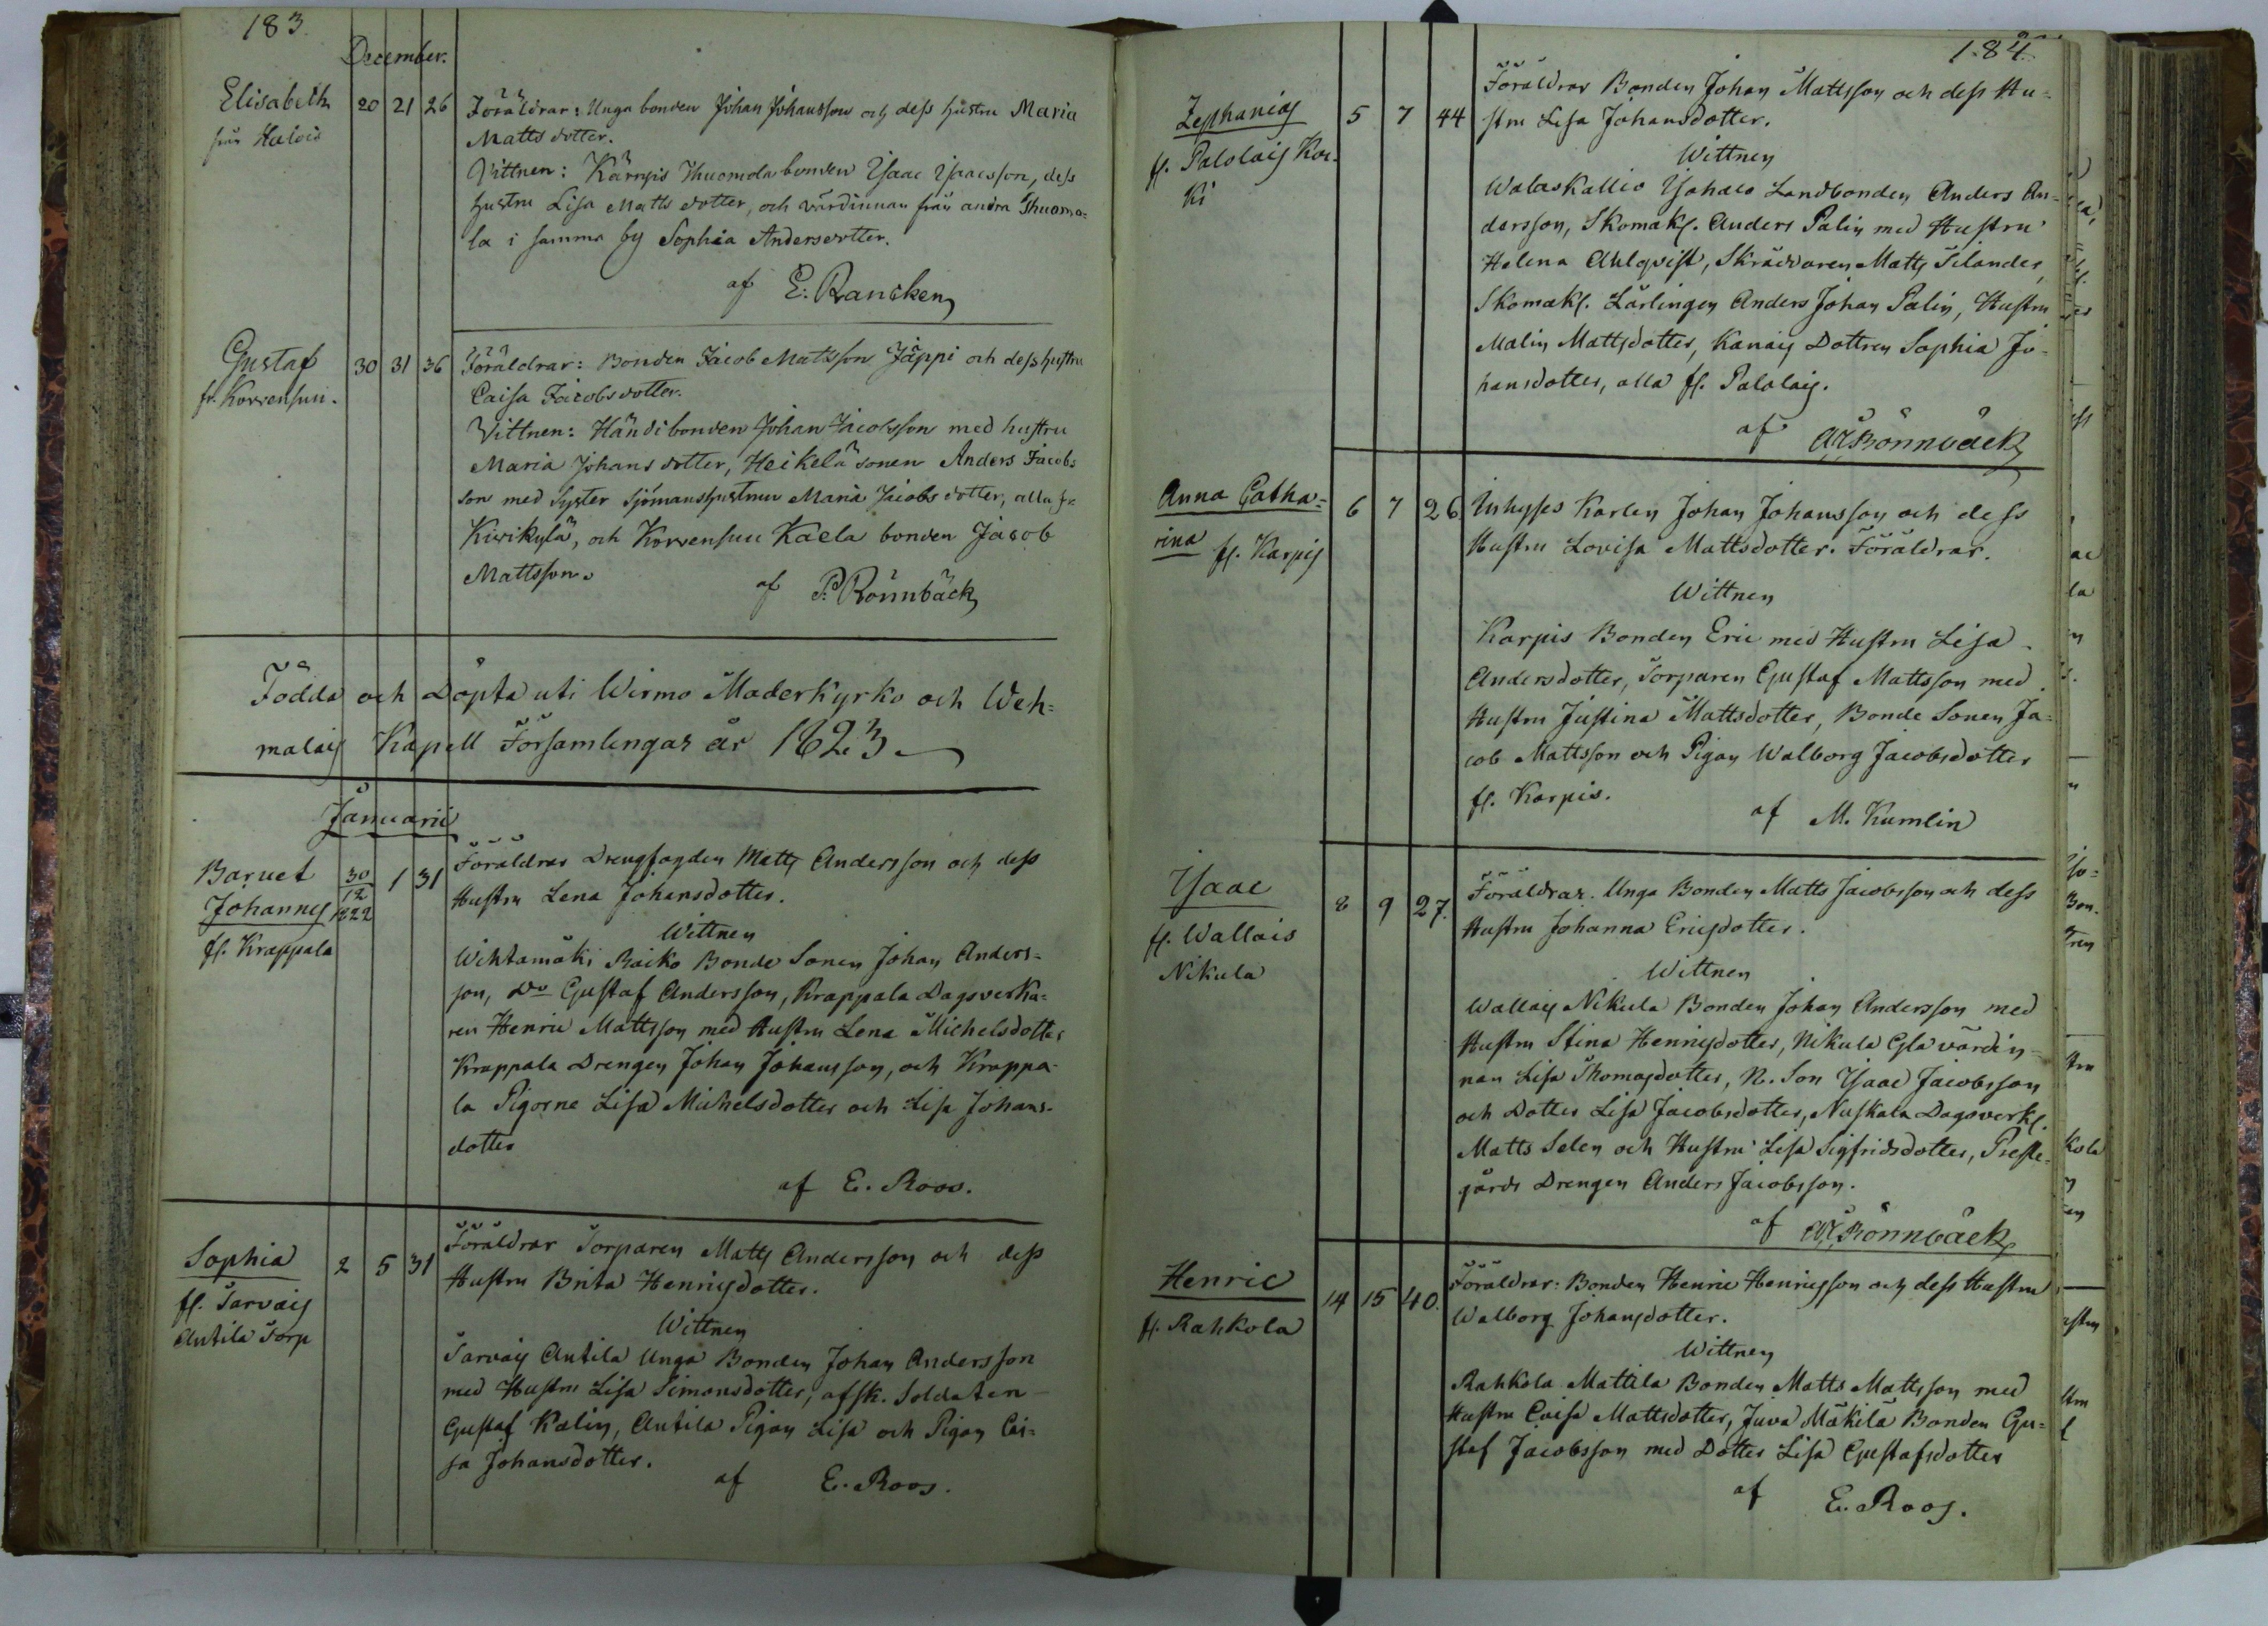 183.
December.
Elisabeth 20 21 26 Föräldrar: Unga bonden Johan Johansson och dess hustru Maria
från Halois
Matts dotter.
Vittnen: Kärrpis Thuomola bonden Isaac Isaacsson, dess
hustru Lisa Matts dotter, och värdinnan från andra Thuomo=
la i samma by Sophia Andersdotter.
af E: Rancken
Gustaf 30 31 36 Föräldrar: Bonden Jacob Mattsson Jäppi och dess hustru
fr. Korvensuu.
Caisa Jacobsdotter.
Vittnen: Händi bonden Johan Jacobsson med hustru
Maria Johans dotter, Heikelä sonen Anders Jacobs
son med Syster Sjömanshustrun Maria Jacobs dotter, alla fr.
Kirikylä, och Korvensuu Kaela bonden Jacob
Mattsson.
af P. Rönnbäck
Födda och Döpta uti Wirmo Moderkyrko och Weh=
malais Kapell Församlingar år 1823.
Januarii
Barnet 30/12 1822 1 31 Föräldrar Drengfogden Matts Andersson och dess
Johannes
fr. Krappala
Hustru Lena Johansdotter.
Wittnen
Wihtamäki Raiko Bonde Sonen Johan Anders=
son, Do Gustaf Andersson, Krappala Dagsverka=
ren Henric Mattsson med Hustru Lena Michelsdotter
Krappala Drengen Johan Johansson, och Krappa=
la Pigorne Lisa Michelsdotter och Lisa Johans=
dotter
af E. Roos.
Sophia 2 5 31 Föräldrar Torparen Matts Andersson och dess
fr. Tarvais
Antila Torp
Hustru Brita Henricsdotter.
Wittnen
Tarvais Antila Unga Bonden Johan Andersson
med Hustru Lisa Simonsdotter, afsk. Soldaten
Gustaf Kalin, Antila Pigan Lisa och Pigan Cai=
sa Johansdotter.
af E. Roos.
184.
Zephanias 5 7 44 Föräldrar Bonden Johan Mattsson och dess Hu=
fr. Palolais Kor=
ki
stru Lisa Johansdotter.
Wittnen
Walaskallio Isohaco Landbonden Anders An=
dersson, Skomak. Anders Palin med Hustru
Helena Ahlqvist, Skräddaren Matts Silander,
Skomak. Lärlingen Anders Johan Palin, Hustru
Malin Mattsdotter, Kanais Dottren Sophia Jo=
hansdotter, alla fr. Palolais.
af Rönnbäck
Anna Catha= 6 7 26 Inhyses Karlen Johan Johansson och dess
rina fr. Karpis
Hustru Lovisa Mattsdotter. Föräldrar.
Wittnen
Karpis Bonden Eric med Hustru Lisa
Andersdotter, Torparen Gustaf Mattsson med
Hustru Justina Mattsdotter, Bonde Sonen Ja=
cob Mattsson och Pigan Walborg Jacobsdotter
fr. Karpis.
af M. Kumlin
Isaac 8 9 27. Föräldrar. Unga Bonden Matts Jacobsson och dess
fr. Wallais
Nikula
Hustru Johanna Ericsdotter.
Wittnen
Wallais Nikula Bonden Johan Andersson med
Hustru Stina Henricsdotter, Nikula Gla värdin=
nan Lisa Thomasdotter, N. Son Isaac Jacobsson
och Dotter Lisa Jacobsdotter, Nuskala Dagsverk.
Matts Selen och Hustru Lisa Sigfridsdotter, Preste=
gårds Drengen Anders Jacobsson.
af Rönnbäck
Henric 14 15 40. Föräldrar: Bonden Henric Henricsson och dess Hustru
fr. Rahkola
Walborg Johansdotter.
Wittnen
Rahkola Mattila Bonden Matts Mattsson med
Hustru Caisa Mattsdotter, Juva Mäkilä Bonden Gu=
staf Jacobsson med Dotter Lisa Gustafsdotter
af E. Roos.